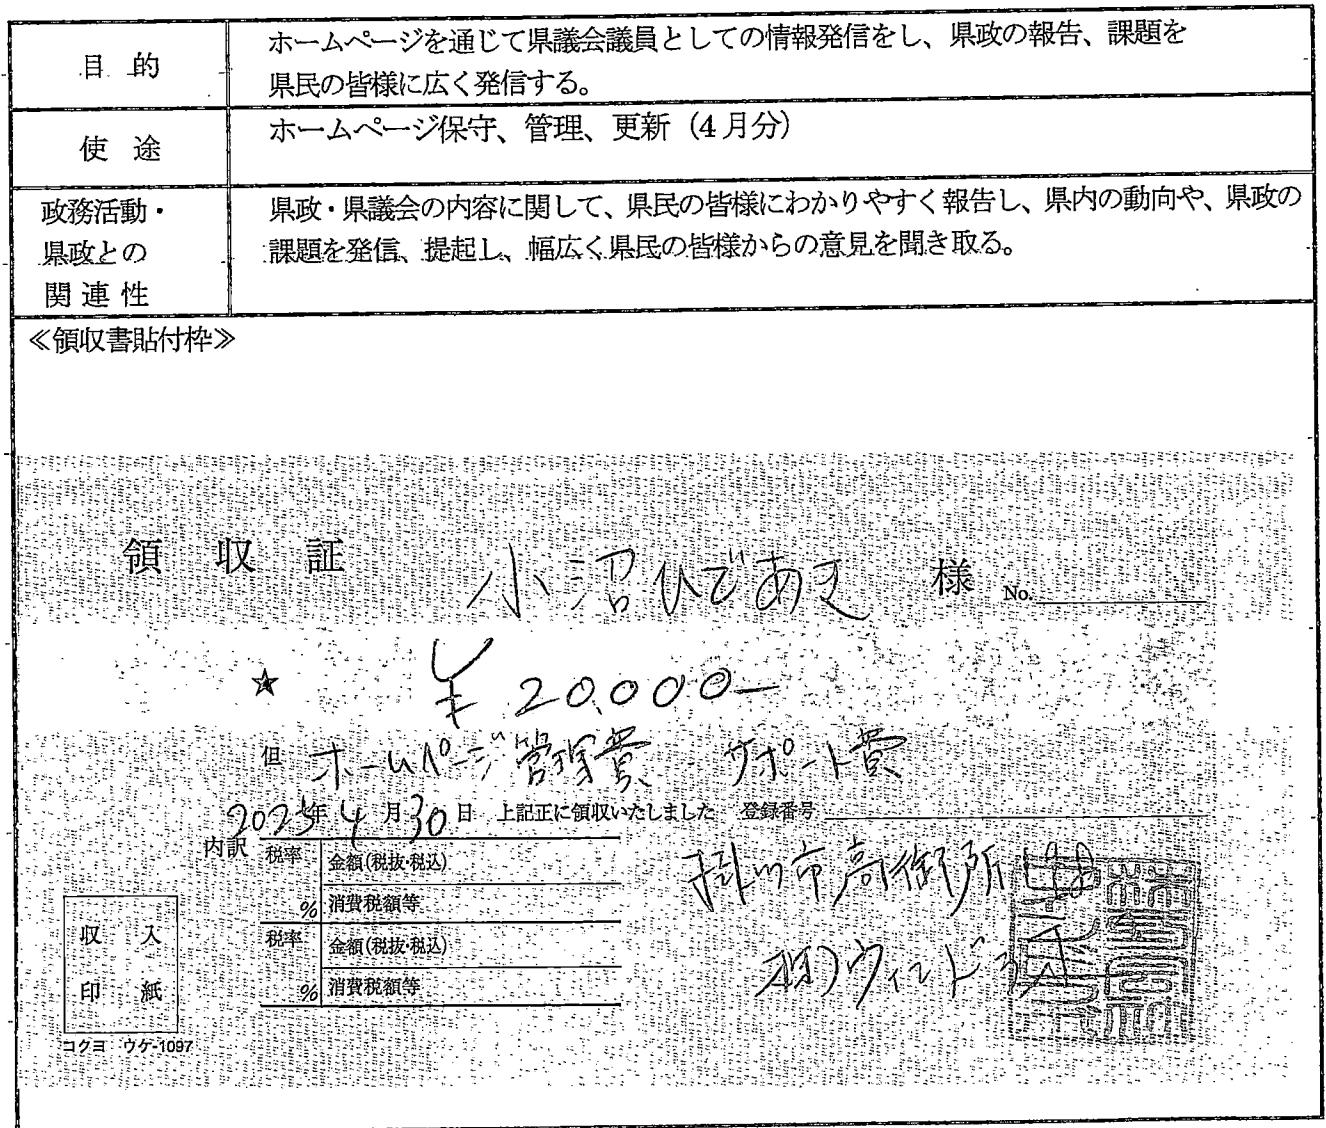 目 的
ホームページを通じて県議会議員としての情報発信をし、県政の報告、課題を
県民の皆様に広く発信する。
使 途
ホームページ保守、管理、更新（4月分）
政務活動・
県政との
関連性
県政・県議会の内容に関して、県民の皆様にわかりやすく報告し、県内の動向や、県政の
課題を発信、提起し、幅広く県民の皆様からの意見を聞き取る。
≪領収書貼付枠≫
領 収 証 小沼ひであき 様 No.
☆ ¥20,000-
但 ホームページ管理費 サポート費
2025年4月30日 上記正に領収いたしました 登録番号
内訳 税率 金額(税抜・税込)
% 消費税額等
税率 金額(税抜・税込)
% 消費税額等
掛川市高御所
㈱ウィンド
収 入
印 紙
コクヨ ウケ-1097